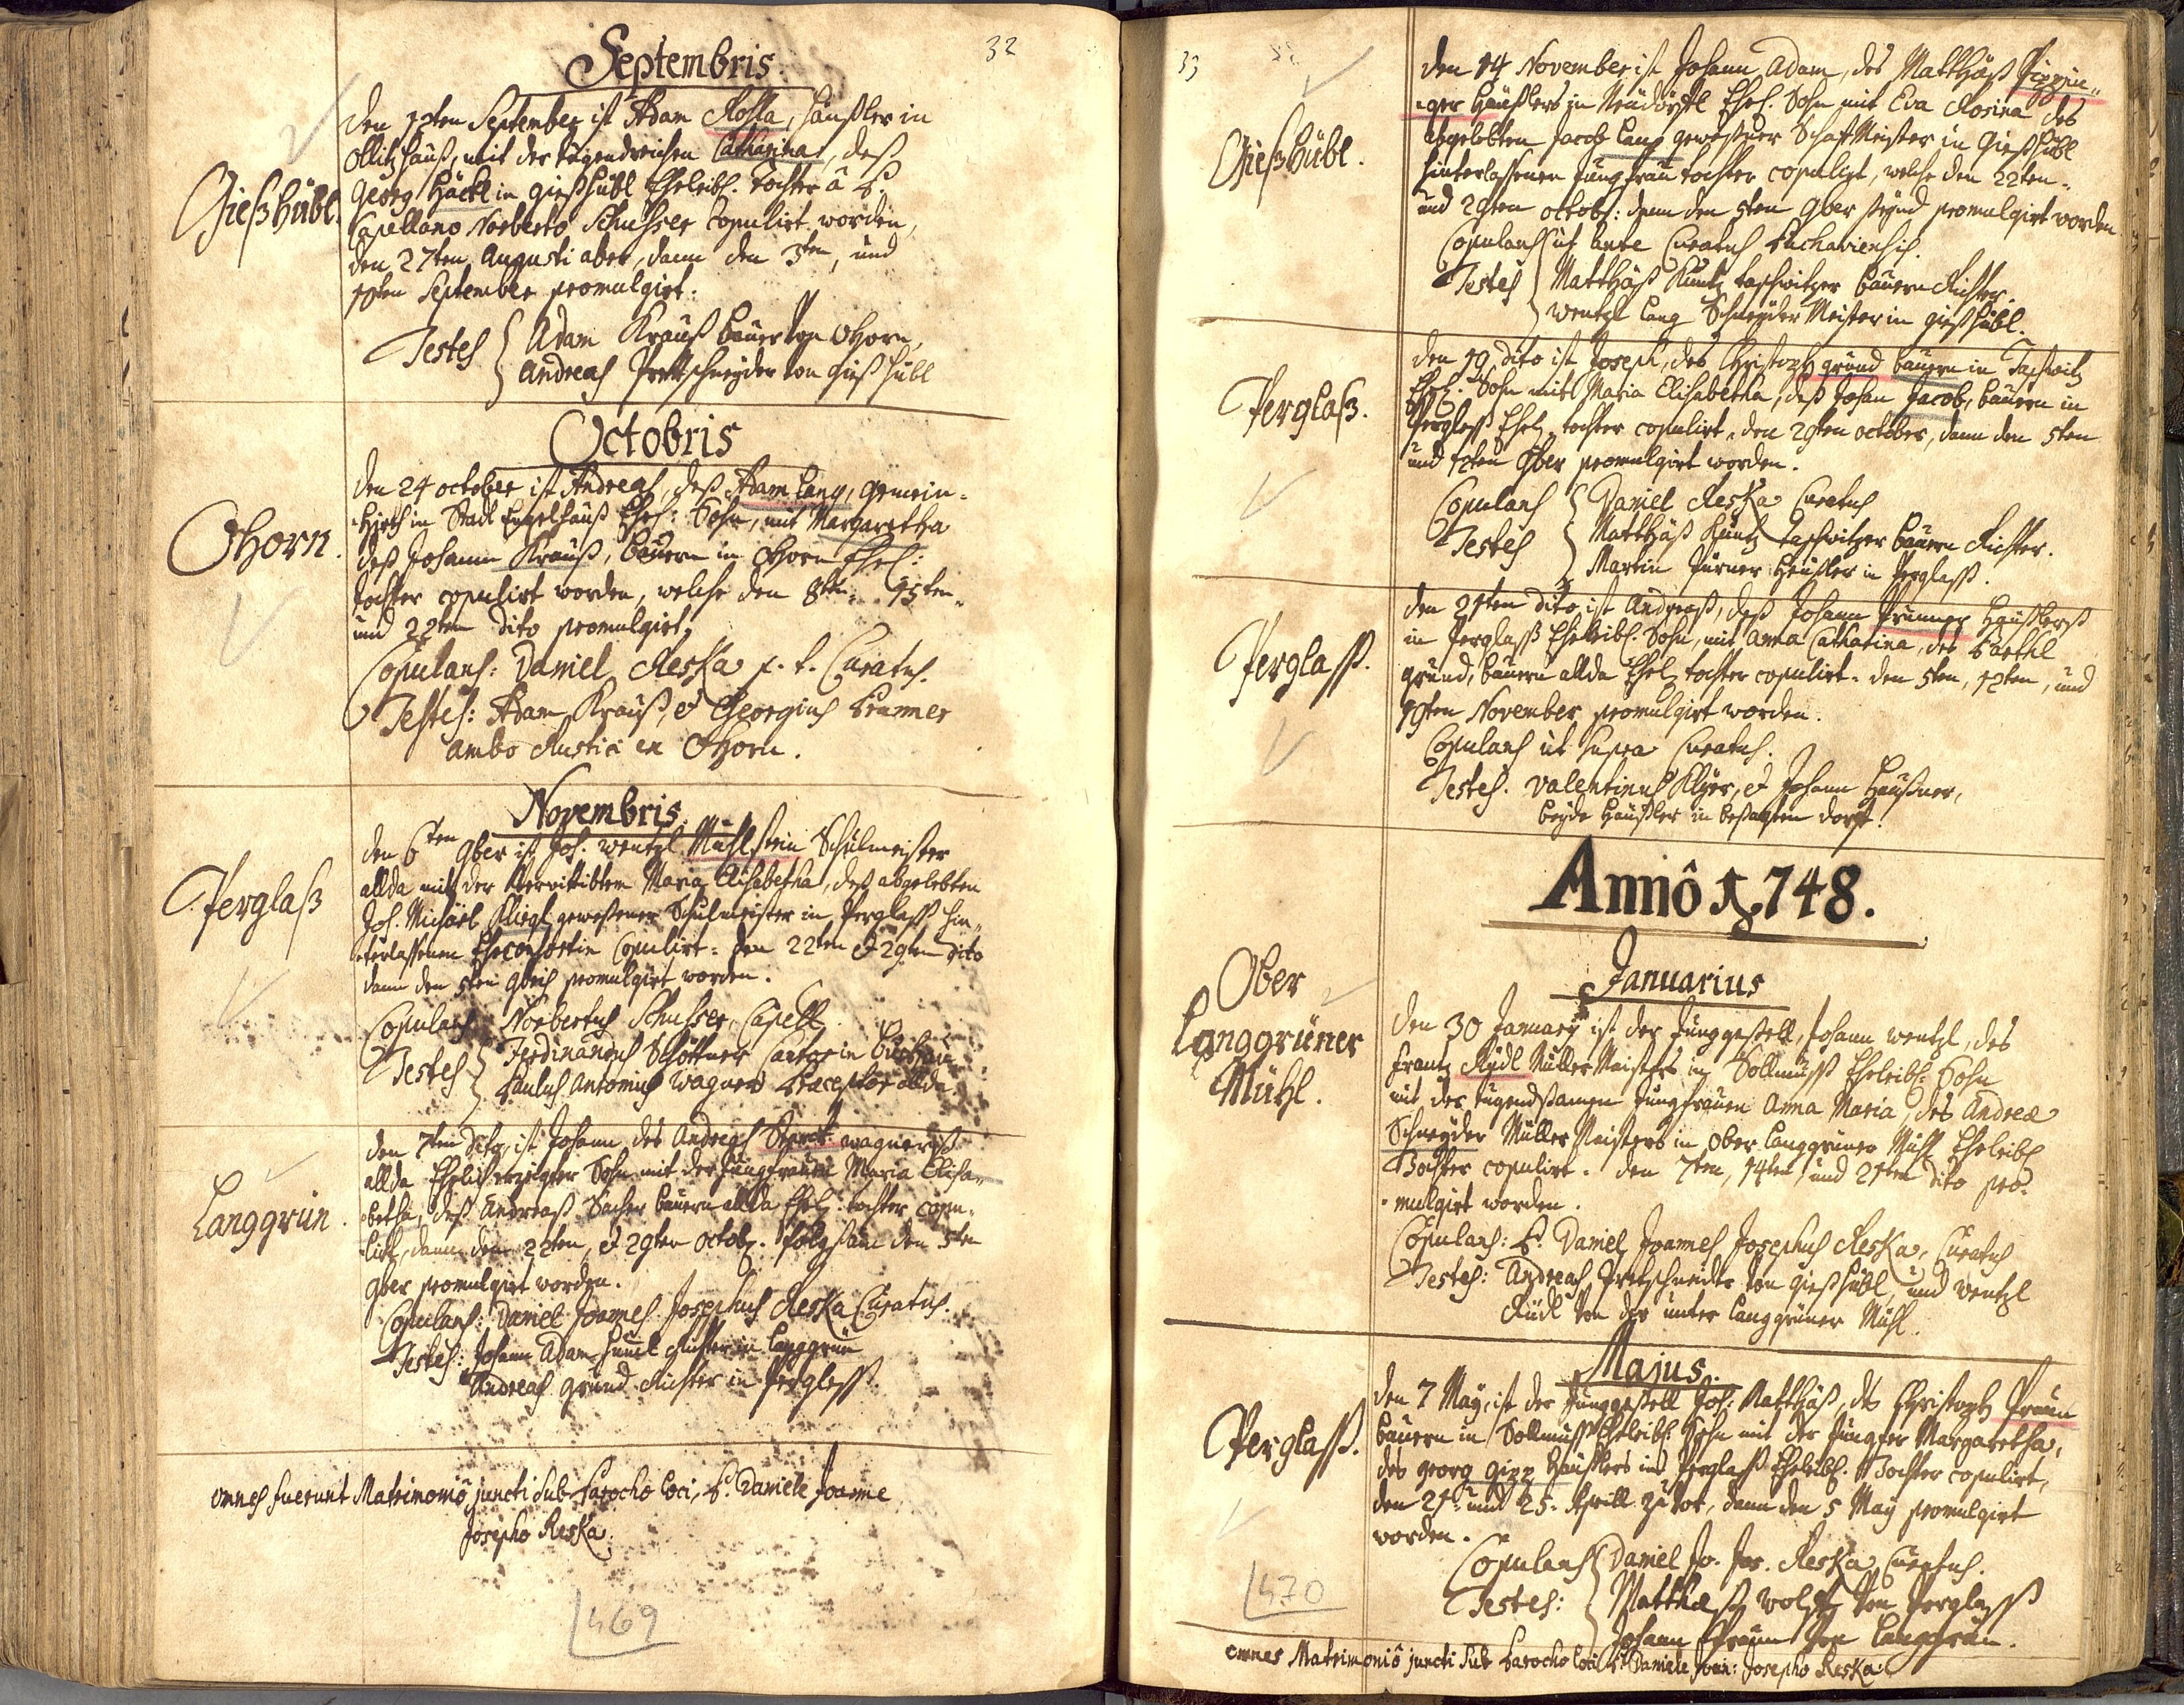 32
Septembris
Gießhübl.
Den 12ten September ist Adam Kosla, häußler in
Ollitzhauß, mit der tugendreichen Catharina, deß
Georg Häckl in gießhübl Eheleibl. tochter â P.
Capellano Norberto Schusser Copulirt worden,
den 27ten Augusti aber, dann den 3ten, und
10ten September promulgirt.
Testes Adam Krauß bauer von Ohorn,
Andreas Prettschneyder von Gießhübl
Octobris
Ohorn.
Den 24 october ist Andreas, deß Adam Lang, gemein=
=hirth in Stadl Engelhauß Ehel: Sohn, mit Margaretha
deß Johann Krauß, bauern in Ohorn Ehel:
tochter copulirt worden, welche den 8ten, 15ten,
und 22ten dito promulgirt,
Copulans: Daniel ResKa p. t. Curatus.
Testes: Adam Krauß, et Georgius Brunner
ambo Rustici ex Ohorn.
Novembris.
Perglaß
den 6ten 9ber ist Joh. Wentzl Mühlstein Schulmeister
allda mit der Maria Elisabetha, deß abgelebten
Joh. Michäel Kliegl geweßener Schulmeister in Perglaß hin=
=terlassenen Eheconsortin Copulirt. den 22ten et 29ten dito
dann den 5ten 9bris promulgirt worden.
Copulans Norbertus Schusser, Capell.
Testes Ferdinandus Schöttner Cantor in Buchau
Paulus Antonius Wagner Præceptor allda
Langgrün.
den 7ten dito, ist Johann des Andreas Starck wagnerß
allda Ehelich erzeigter Sohn mit der Jungfrauen Maria Elisa=
=betha, deß Andreaß Sacher bauern allda Ehel: tochter copu=
=lirt, dann den 22ten, et 29ten octob. folgsam den 5ten
9ber promulgirt worden.
Copulans: Daniel Joannes Josephus ResKa Curatus.
Testes: Johann Adam Richter in Langgrün
Andreas Grund Richter in Perglaß
omnes fuerunt Matrimoniô juncti sub Parocho loci, P. Daniele Joanne
Josepho ResKa.
469
33
Gießhübl.
den 14 November ist Johann Adam, des Matthäß
=ger Häußlers in Neudörfl Ehel. Sohn mit Eva Rosina des
abgelebten Jacob Lang geweßener Schaf Meister in Gießhübl
hinterlassenen Jungfrau tochter copulirt, welche den 22ten=
und 29ten octob: dann den 5ten 9ber seynd promulgirt worden
Copulans ut ante Curatus Luchaviensis.
Testes Matthäß Kuntz taschwitzer bauern Richter.
Wentzl Lang Schneyder Meister in gießhübl.
Perglaß.
den 19 dito ist Joseph, des Christoph grund bauern in Taschwitz
Ehel. Sohn mit Maria Elisabetha, deß Johan Jacob, bauern in
Perglaß Ehel. tochter copulirt, den 29ten october, dann den 5ten
und 12ten 9ber promulgirt worden.
Copulans Daniel ResKa Curatus
Testes Matthäß Kuntz taschwitzer bauern Richter.
Martin Häußler in Perglaß.
Perglaß.
den 21ten dito ist Andreaß, deß Johann Prunner Häußlerß
in Perglaß Eheleibl. Sohn, mit Anna Catharina, des Barthl
grund, bauern allda Ehel. tochter copulirt. den 5ten, 12ten, und
19ten November promulgirt worden.
Copulans ut supra Curatus.
Testes. Valentinus et Johann Haußner,
beyde Häußler in besagten dorff.
Annô 1748.
Januarius
Ober
Langgrüner
Mühl.
Den 30 January ist der Junggesell, Johann Wentzl, des
Frantz Rüdl Müller Meisters in Sollmuß Eheleibl: Sohn
mit der tugendsamen Jungfrauen Anna Maria, des Andreæ
Schneyder Müller Meisters in Ober Langgrüner Mühl Eheleibl
Tochter copulirt. den 7ten, 14ten, und 21ten dito pro=
=mulgirt worden.
Copulans: P. Daniel Joannes Josephus ResKa, Curatus
Testes: Andreas Pretschneider von Gießhübl, und Wentzl
Rüdl von der unter Langgrüner Mühl.
Majus.
Perglaß.
den 7 May, ist der Junggesell Joh: Matthäß, des Christoph Praun
bauern in Sollmuß Eheleibl: Sohn mit der Jungfer Margaretha,
des Georg Gipp Häußlers in Perglaß Eheleibl. Tochter copulirt,
den 21. und 25. Aprill zu vor, dann den 5 May promulgirt
worden.
Copulans Daniel Jo. Jos. ResKa Curatus.
Testes: Matthæß Wolff von Perglaß
Johann Praun von Langgrün.
470
omnes Matrimoniô juncti sub Parocho loci P. Daniele Joan: Josepho ResKa.